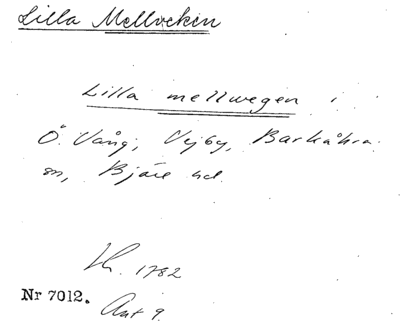 Lilla Mellveken
Lilla mellwegen i
Ö. Vång, Vejby, Barkåkra
sn, Bjäre hd.
Lh. 1782
Nr 7012. Akt 9.